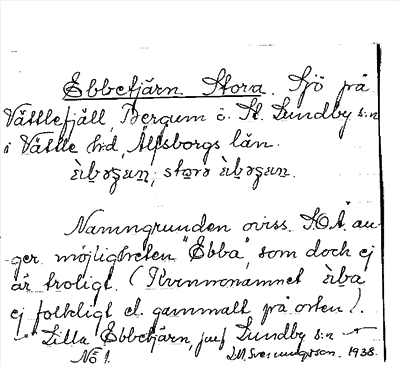 Ebbetjärn Stora. Sjö på
Vättlefjäll, Bergum o. St. Lundby s:n
i Vättle hd, Älfsborgs län.
Namngrunden oviss. S.O.Ä. an-
ger möjligheten "Ebba", som doch ej
är troligt. (Kvinnonamnet
ej folkligt el. gammalt på orten).
Lilla Ebbetjärn, jmf Lundby s:n
No 1. 1938.